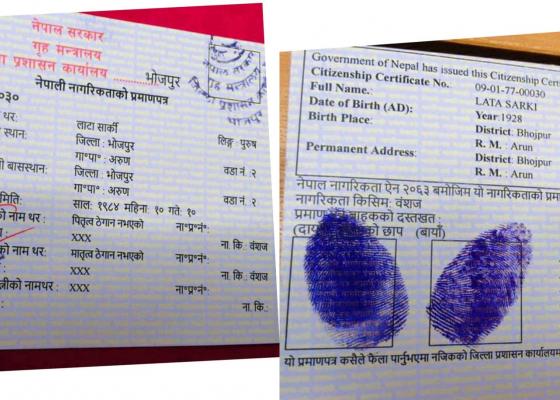 नेपाल सरकार
गृह मन्त्रालय
प्रशासन कार्यालय ............ भोजपुर
नेपाल सरकार
गृह मन्त्रालय
जिल्ला प्रशासन
भोजपुर
नेपाली नागरिकताको प्रमाणपत्र
०३०
थर: लाटा सार्की लिङ्ग : पुरुष
स्थान: जिल्ला : भोजपुर
गा°पा° : अरुण वडा नं. : २
बासस्थान: जिल्ला : भोजपुर
गा°पा° : अरुण वडा नं. : २
मिति: साल: १९८४ महिना: १० गते: १०
को नाम थर: पितृत्व ठेगान नभएको ना°प्र°नं°:
XXX ना. कि : वंशज
को नाम थर : मातृत्व ठेगान नभएको ना°प्र°नं°:
XXX ना. कि : वंशज
को नामथर : XXX ना°प्र°नं°:
ना. कि.:
Government of Nepal has issued this Citizenship
Citizenship Certificate No. 09-01-77-00030
Full Name.: LATA SARKI
Date of Birth (AD): Year:1928
Birth Place: District: Bhojpur
R. M. : Arun
Permanent Address: District: Bhojpur
R. M. : Arun
नेपाल नागरिकता ऐन २०६३ बमोजिम यो नागरिकताको
नागरिकता किसिम: वंशज
बाहकको दस्तखत :
छाप (बायाँ)
यो प्रमाणपत्र कसैले फेला पार्नुभएमा नजिकको जिल्ला प्रशासन